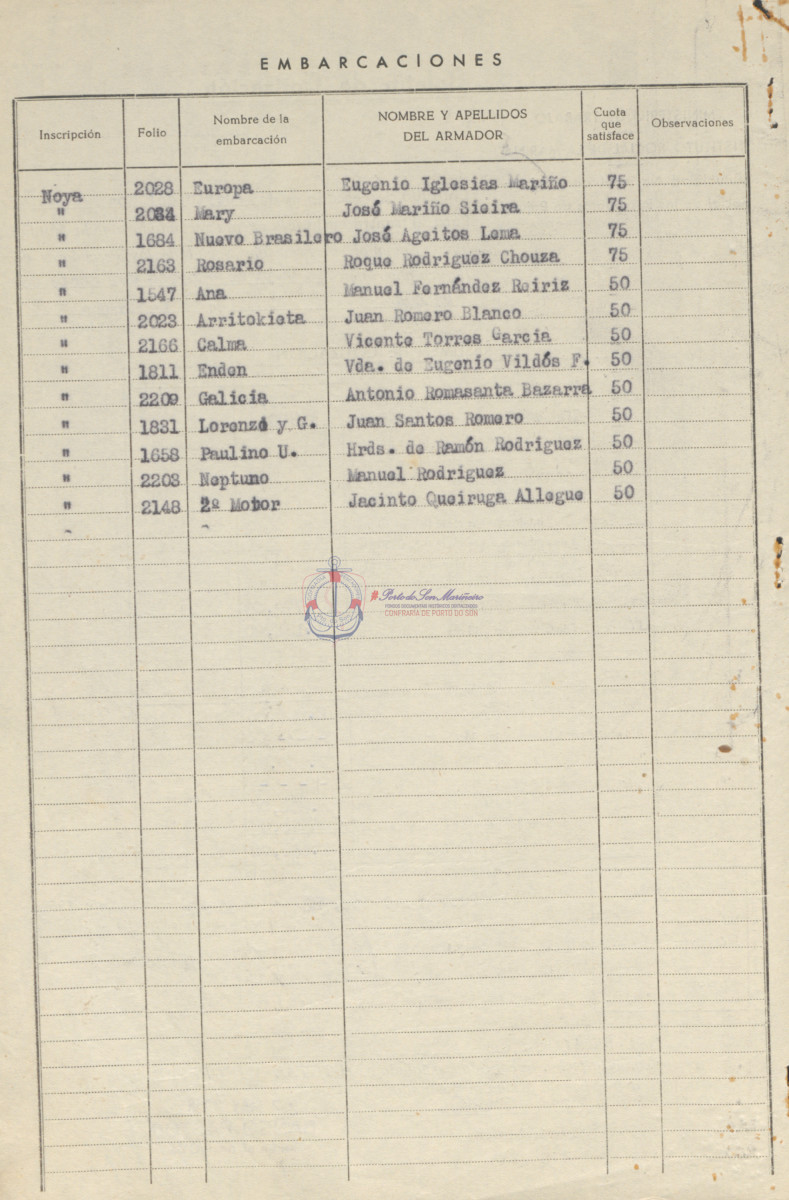 EMBARCACIONES
Inscripción Folio Nombre de la embarcación NOMBRE Y APELLIDOS DEL ARMADOR Cuota que satisface Observaciones
Noya 2028 Europa Eugenio Iglesias Mariño 75
" Mary José Mariño Sieira 75
" 1684 Nuevo Brasilero José Ageitos Lema 75
" 2163 Rosario Roque Rodriguez Chouza 75
" 1547 Ana Manuel Fernández Reiriz 50
" 2023 Arritokieta Juan Romero Blanco 50
" 2166 Calma Vicente Torres Garcia 50
" 1811 Enden Vda. de Eugenio Vildós F. 50
" 2209 Galicia Antonio Romasanta Bazarra 50
" 1831 Lorenzo y G. Juan Santos Romero 50
" 1658 Paulino U. Hrds. de Ramón Rodriguez 50
" 2203 Neptuno Manuel Rodriguez 50
" 2148 2º Motor Jacinto Queiruga Allegue 50
Porto do Son Mariñeiro
FONDOS DOCUMENTAIS HISTÓRICOS DIXITALIZADOS
CONFRARÍA DE PORTO DO SON